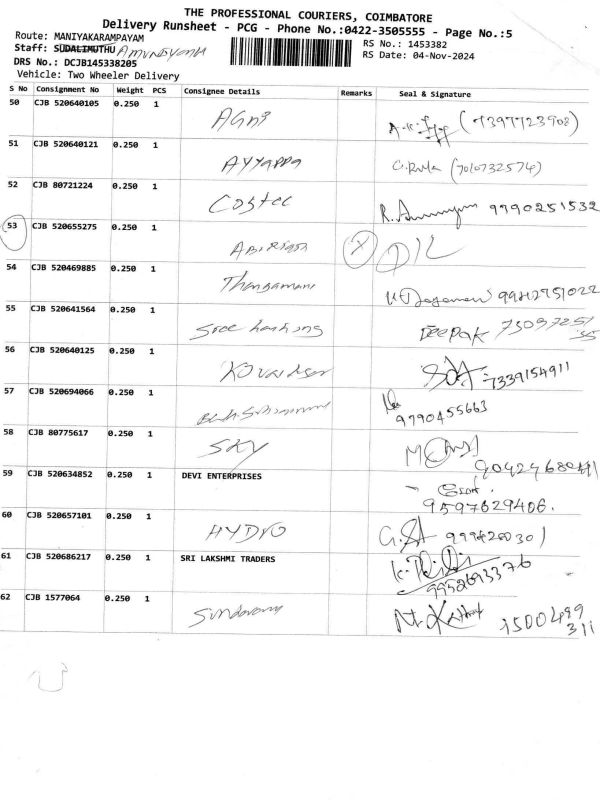 THE PROFESSIONAL COURIERS, COIMBATORE
Delivery Runsheet - PCG - Phone No.:0422-3505555 - Page No.:5
Route: MANIYAKARAMPAYAM
RS No.: 1453382
Staff: SUDALIMUTHU
RS Date: 04-Nov-2024
DRS No.: DCJB145338205
Vehicle: Two Wheeler Delivery
S No Consignment No Weight PCS Consignee Details Remarks Seal & Signature
50 CJB 520640105 0.250 1 AGNI (7397723908)
51 CJB 520640121 0.250 1 AYYAPPA (7010732574)
52 CJB 80721224 0.250 1 Costec 9790251532
53 CJB 520655275 0.250 1 X D/L
54 CJB 520469885 0.250 1 Thangamani
55 CJB 520641564 0.250 1 Sree Deepak
56 CJB 520640125 0.250 1 7339154911
57 CJB 520694066 0.250 1 9790455663
58 CJB 80775617 0.250 1 SKY
59 CJB 520634852 0.250 1 DEVI ENTERPRISES 9597629406.
60 CJB 520657101 0.250 1 HYDRO
61 CJB 520686217 0.250 1 SRI LAKSHMI TRADERS 9952693376
62 CJB 1577064 0.250 1